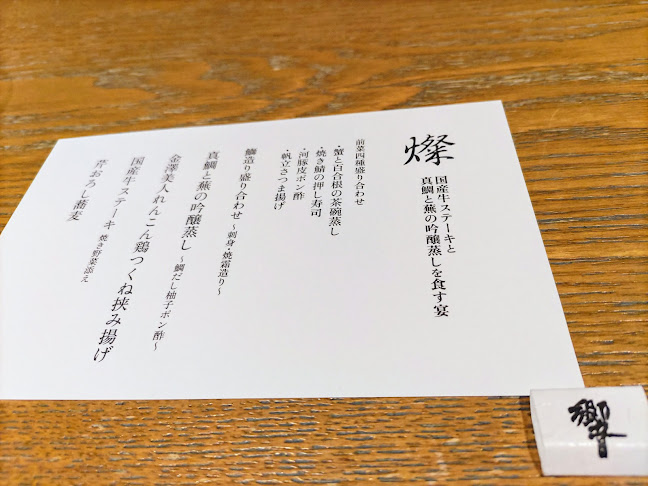 燦
国産牛ステーキと
真鯛と蕪の吟醸蒸しを食す宴
前菜四種盛り合わせ
・蟹と百合根の茶碗蒸し
・焼き鯖の押し寿司
・河豚皮ポン酢
・帆立さつま揚げ
鯛造り盛り合わせ ～刺身・焼霜造り～
真鯛と蕪の吟醸蒸し ～鯛だし柚子ポン酢～
金澤美人れんこん鶏つくね挟み揚げ
国産牛ステーキ 焼き野菜添え
芹おろし蕎麦
響